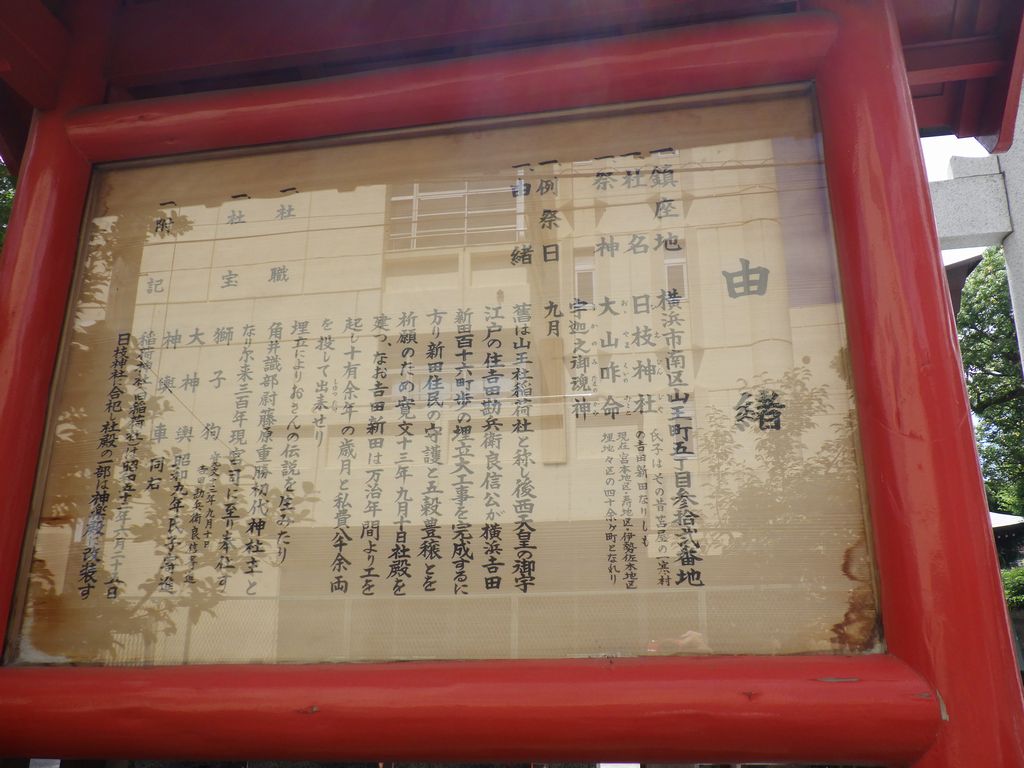 由緒
一鎮座地 横浜市南区山王町五丁目参拾弐番地
一社名 日枝神社 氏子はその昔苫屋の一寒村
の吉田新田なりしも
現在宮本地区・寿地区・伊勢佐木地区
埋地々区の四十余ヶ町となれり
一祭神 大山咋命
宇迦之御魂神
一例祭日 九月
一由緒 舊は山王社稲荷社と称し後西天皇の御宇
江戸の住吉田勘兵衛良信公が横浜吉田
新田百十六町歩の埋立大工事を完成するに
方り新田住民の守護と五穀豊穣とを
祈願のため寛文十三年九月十日社殿を
建つ、なお吉田新田は万治年間より工を
起し十有余年の歳月と私費八千余両
を投して出来せり
埋立によりおさんの伝説を生みたり
一社職 角井式部尉藤原重勝初代神社主と
なり尓来三百年現宮司に至り奉仕す
一社宝 獅子狗 寛文十三年九月十日
吉田勘兵衛良信寄進
大神輿 昭和九年氏子寄進
神輿車 同右
一附記 稲荷神社は昭五十二年八月二十五日
日枝神社に合祀、社殿の一部は神楽殿に改装す